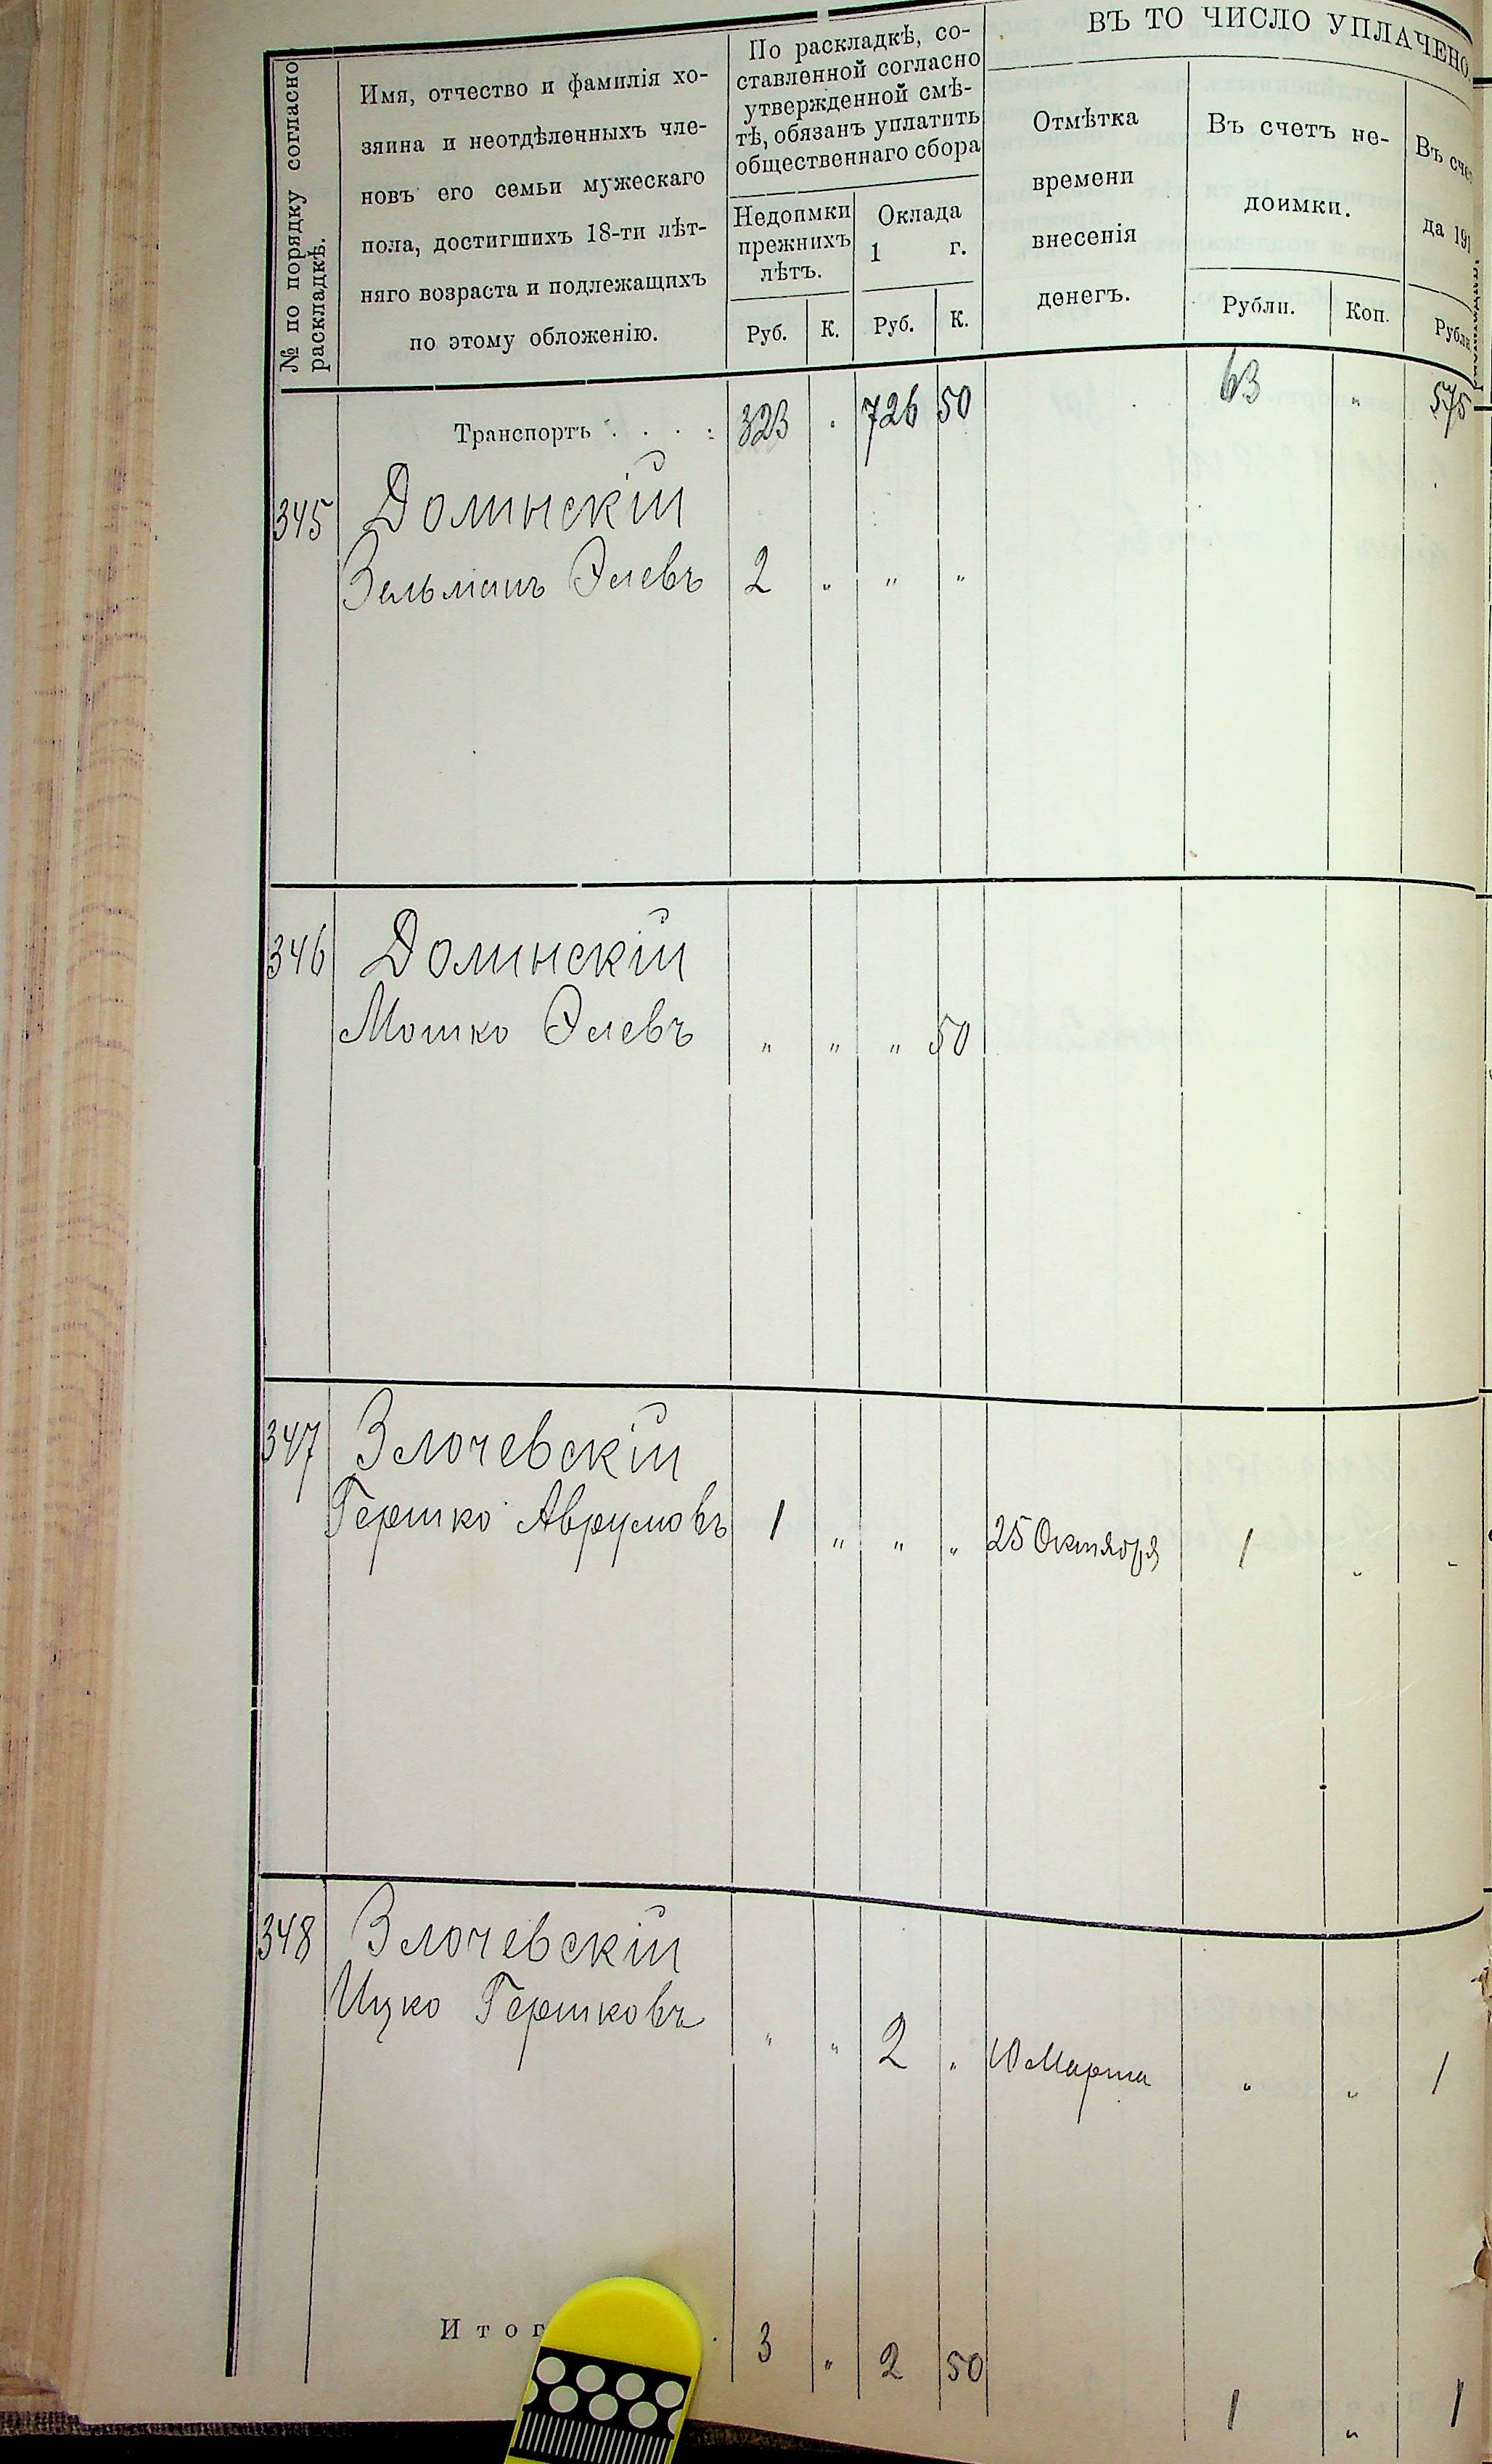 № по порядку согласно
раскладкѣ.
Имя, отчество и фамилія хо-
зяина и неотдѣленныхъ чле-
новъ его семьи мужескаго
пола, достигшихъ 18-ти лѣт-
няго возраста и подлежащихъ
по этому обложенію.
По раскладкѣ, со-
ставленной согласно
утвержденной смѣ-
тѣ, обязанъ уплатить
общественнаго сбора
Недоимки
прежнихъ
лѣтъ.
Оклада
1 г.
Руб. К. Руб. К.
ВЪ ТО ЧИСЛО УПЛАЧЕНО
Отмѣтка
времени
внесенія
денегъ.
Въ счетъ не-
доимки.
Рубли. Коп.
Въ сче
да 191
Рубли
Транспортъ . . . . 323 " 726 50 63 " 575
345 Долинскій
Зельманъ Элевъ 2 " " "
346 Долинскій
Мошко Элевъ " " " 50
347 Злочевскій
Гершко Аврумовъ 1 " " " 25 Октября 1 " "
348 Злочевскій
Ицко Гершковъ " " 2 " 10 Марта " " 1
Итог 3 " 2 50 1 " 1